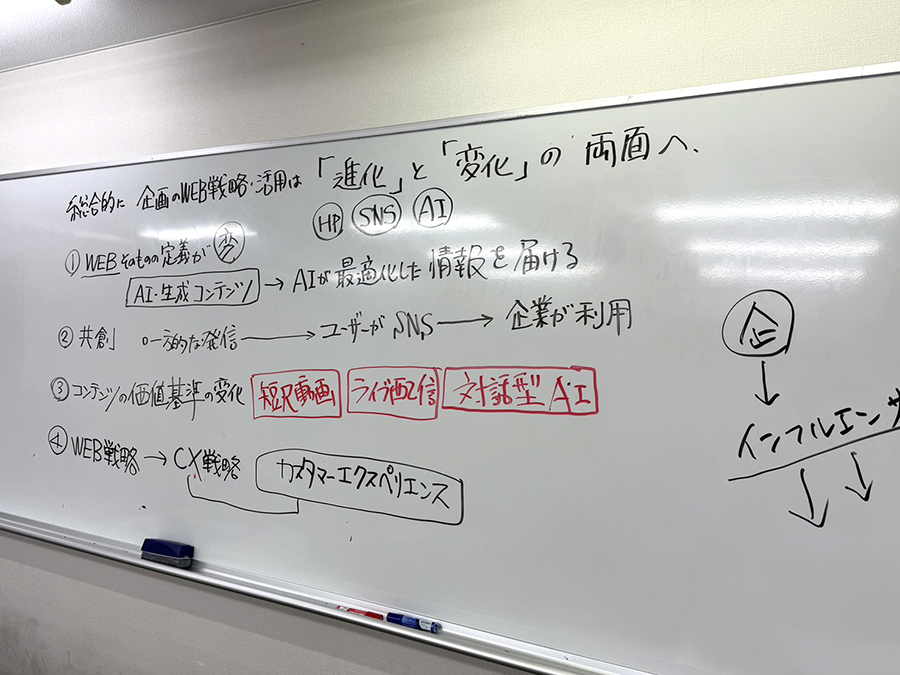 総合的に 企画のWEB戦略・活用は 「進化」と「変化」の 両面へ.
HP SNS AI
① WEBそのものの定義が 変
AI・生成コンテンツ → AIが最適化した情報を届ける
② 共創 一方的な発信 → ユーザーがSNS → 企業が利用
③ コンテンツの価値基準の変化 短尺動画 ライブ配信 対話型AI
④ WEB戦略 → CX戦略 カスタマーエクスペリエンス
企
↓
インフルエンサ
↓ ↓